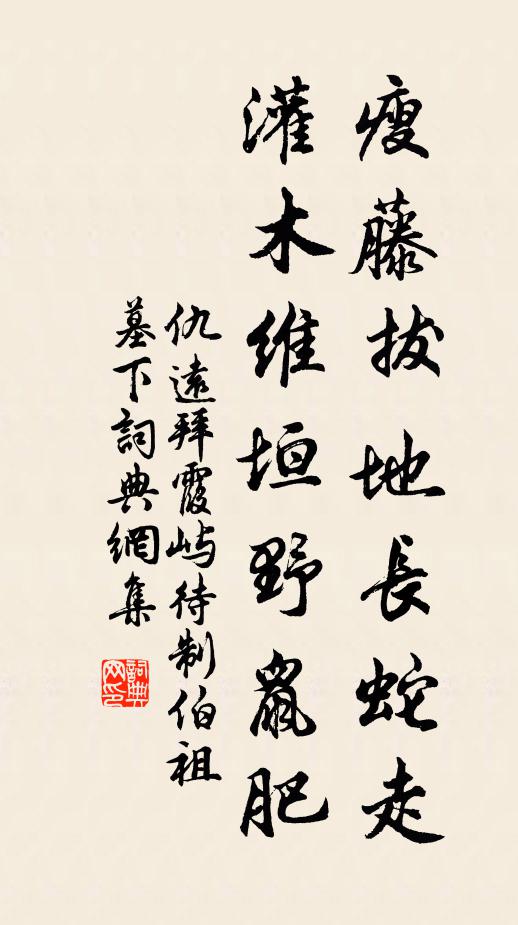 瘦藤拔地長蛇走
灌木維垣野鼠肥
仇遠拜霞嶼待制伯祖
墓下詞典網集
詞典網印